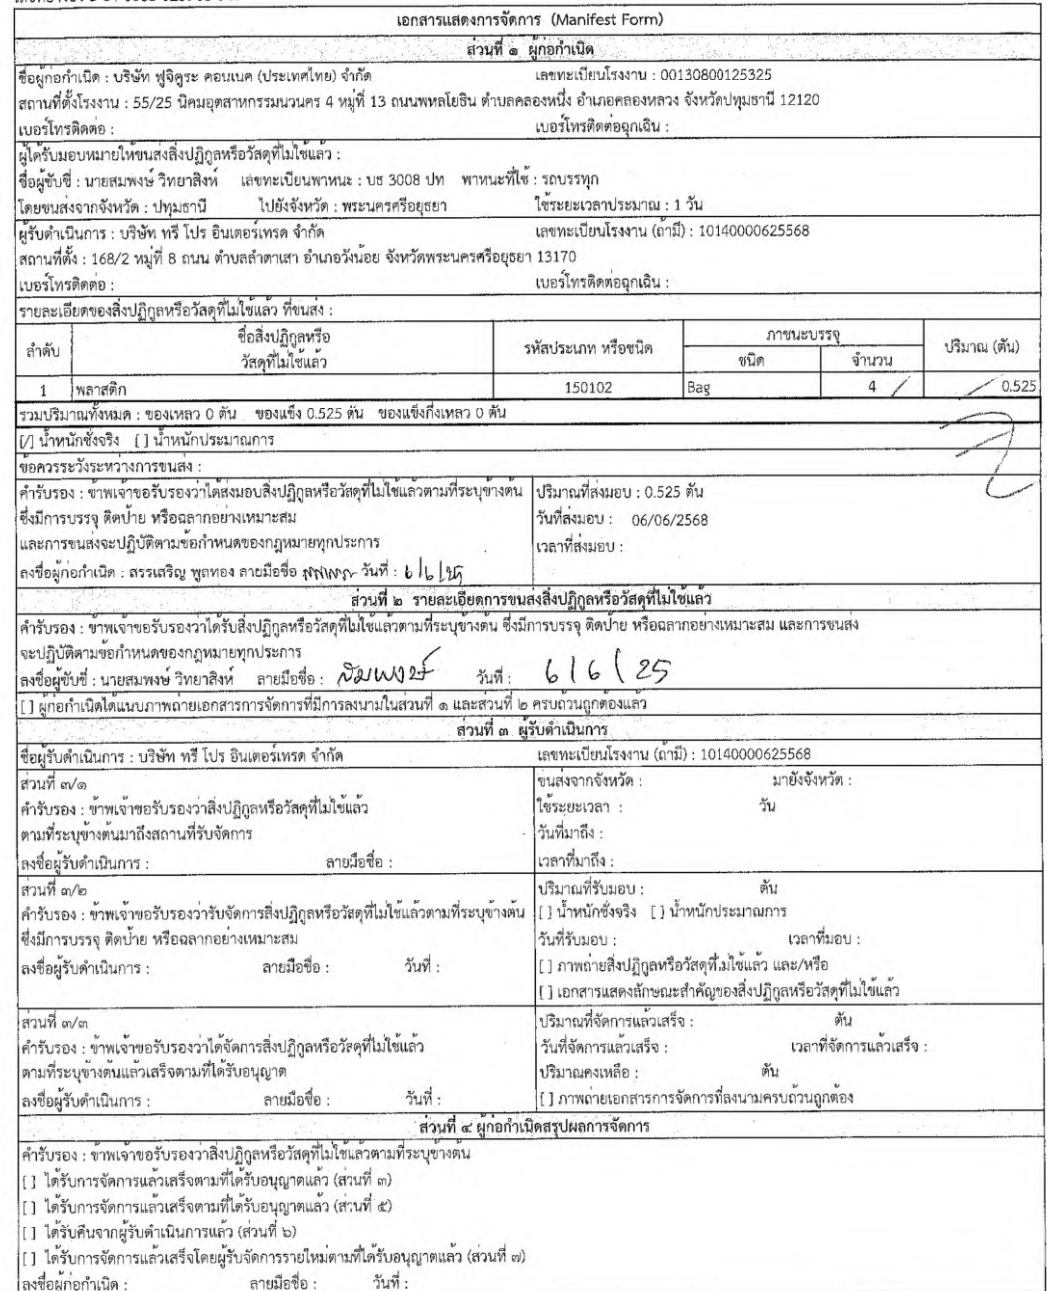 เอกสารแสดงการจัดการ (Manifest Form)
ส่วนที่ ๑ ผู้ก่อกำเนิด
ชื่อผู้ก่อกำเนิด : บริษัท ฟูจิคูระ คอนเนค (ประเทศไทย) จำกัด เลขทะเบียนโรงงาน : 00130800125325
สถานที่ตั้งโรงงาน : 55/25 นิคมอุตสาหกรรมนวนคร 4 หมู่ที่ 13 ถนนพหลโยธิน ตำบลคลองหนึ่ง อำเภอคลองหลวง จังหวัดปทุมธานี 12120
เบอร์โทรติดต่อ : เบอร์โทรติดต่อฉุกเฉิน :
ผู้ได้รับมอบหมายให้ขนส่งสิ่งปฏิกูลหรือวัสดุที่ไม่ใช้แล้ว :
ชื่อผู้ขับขี่ : นายสมพงษ์ วิทยาสิงห์ เลขทะเบียนพาหนะ : บธ 3008 ปท พาหนะที่ใช้ : รถบรรทุก
โดยขนส่งจากจังหวัด : ปทุมธานี ไปยังจังหวัด : พระนครศรีอยุธยา ใช้ระยะเวลาประมาณ : 1 วัน
ผู้รับดำเนินการ : บริษัท ทรี โปร อินเตอร์เทรด จำกัด เลขทะเบียนโรงงาน (ถ้ามี) : 10140000625568
สถานที่ตั้ง : 168/2 หมู่ที่ 8 ถนน ตำบลลำตาเสา อำเภอวังน้อย จังหวัดพระนครศรีอยุธยา 13170
เบอร์โทรติดต่อ : เบอร์โทรติดต่อฉุกเฉิน :
รายละเอียดของสิ่งปฏิกูลหรือวัสดุที่ไม่ใช้แล้ว ที่ขนส่ง :
ลำดับ ชื่อสิ่งปฏิกูลหรือ รหัสประเภท หรือชนิด ภาชนะบรรจุ ปริมาณ (ตัน)
วัสดุที่ไม่ใช้แล้ว ชนิด จำนวน
1 พลาสติก 150102 Bag 4 0.525
รวมปริมาณทั้งหมด : ของเหลว 0 ตัน ของแข็ง 0.525 ตัน ของแข็งกึ่งเหลว 0 ตัน
[/] น้ำหนักชั่งจริง [ ] น้ำหนักประมาณการ
ข้อควรระวังระหว่างการขนส่ง :
คำรับรอง : ข้าพเจ้าขอรับรองว่าได้ส่งมอบสิ่งปฏิกูลหรือวัสดุที่ไม่ใช้แล้วตามที่ระบุข้างต้น ปริมาณที่ส่งมอบ : 0.525 ตัน
ซึ่งมีการบรรจุ ติดป้าย หรือฉลากอย่างเหมาะสม วันที่ส่งมอบ : 06/06/2568
และการขนส่งจะปฏิบัติตามข้อกำหนดของกฎหมายทุกประการ เวลาที่ส่งมอบ :
ลงชื่อผู้ก่อกำเนิด : สรรเสริญ พูลทอง ลายมือชื่อ วันที่ : 6/6/25
ส่วนที่ ๒ รายละเอียดการขนส่งสิ่งปฏิกูลหรือวัสดุที่ไม่ใช้แล้ว
คำรับรอง : ข้าพเจ้าขอรับรองว่าได้รับสิ่งปฏิกูลหรือวัสดุที่ไม่ใช้แล้วตามที่ระบุข้างต้น ซึ่งมีการบรรจุ ติดป้าย หรือฉลากอย่างเหมาะสม และการขนส่ง
จะปฏิบัติตามข้อกำหนดของกฎหมายทุกประการ
ลงชื่อผู้ขับขี่ : นายสมพงษ์ วิทยาสิงห์ ลายมือชื่อ : สมพงษ์ วันที่ : 6/6/25
[ ] ผู้ก่อกำเนิดได้แนบภาพถ่ายเอกสารการจัดการที่มีการลงนามในส่วนที่ ๑ และส่วนที่ ๒ ครบถ้วนถูกต้องแล้ว
ส่วนที่ ๓ ผู้รับดำเนินการ
ชื่อผู้รับดำเนินการ : บริษัท ทรี โปร อินเตอร์เทรด จำกัด เลขทะเบียนโรงงาน (ถ้ามี) : 10140000625568
ส่วนที่ ๓/๑ ขนส่งจากจังหวัด : มายังจังหวัด :
คำรับรอง : ข้าพเจ้าขอรับรองว่าสิ่งปฏิกูลหรือวัสดุที่ไม่ใช้แล้ว ใช้ระยะเวลา : วัน
ตามที่ระบุข้างต้นมาถึงสถานที่รับจัดการ วันที่มาถึง :
ลงชื่อผู้รับดำเนินการ : ลายมือชื่อ : เวลาที่มาถึง :
ส่วนที่ ๓/๒ ปริมาณที่รับมอบ : ตัน
คำรับรอง : ข้าพเจ้าขอรับรองว่ารับจัดการสิ่งปฏิกูลหรือวัสดุที่ไม่ใช้แล้วตามที่ระบุข้างต้น [ ] น้ำหนักชั่งจริง [ ] น้ำหนักประมาณการ
ซึ่งมีการบรรจุ ติดป้าย หรือฉลากอย่างเหมาะสม วันที่รับมอบ : เวลาที่มอบ :
ลงชื่อผู้รับดำเนินการ : ลายมือชื่อ : วันที่ : [ ] ภาพถ่ายสิ่งปฏิกูลหรือวัสดุที่ไม่ใช้แล้ว และ/หรือ
[ ] เอกสารแสดงลักษณะสำคัญของสิ่งปฏิกูลหรือวัสดุที่ไม่ใช้แล้ว
ส่วนที่ ๓/๓ ปริมาณที่จัดการแล้วเสร็จ : ตัน
คำรับรอง : ข้าพเจ้าขอรับรองว่าได้จัดการสิ่งปฏิกูลหรือวัสดุที่ไม่ใช้แล้ว วันที่จัดการแล้วเสร็จ : เวลาที่จัดการแล้วเสร็จ :
ตามที่ระบุข้างต้นแล้วเสร็จตามที่ได้รับอนุญาต ปริมาณคงเหลือ : ตัน
ลงชื่อผู้รับดำเนินการ : ลายมือชื่อ : วันที่ : [ ] ภาพถ่ายเอกสารการจัดการที่ลงนามครบถ้วนถูกต้อง
ส่วนที่ ๔ ผู้ก่อกำเนิดสรุปผลการจัดการ
คำรับรอง : ข้าพเจ้าขอรับรองว่าสิ่งปฏิกูลหรือวัสดุที่ไม่ใช้แล้วตามที่ระบุข้างต้น
[ ] ได้รับการจัดการแล้วเสร็จตามที่ได้รับอนุญาตแล้ว (ส่วนที่ ๓)
[ ] ได้รับการจัดการแล้วเสร็จตามที่ได้รับอนุญาตแล้ว (ส่วนที่ ๕)
[ ] ได้รับคืนจากผู้รับดำเนินการแล้ว (ส่วนที่ ๖)
[ ] ได้รับการจัดการแล้วเสร็จโดยผู้รับจัดการรายใหม่ตามที่ได้รับอนุญาตแล้ว (ส่วนที่ ๗)
ลงชื่อผู้ก่อกำเนิด : ลายมือชื่อ : วันที่ :